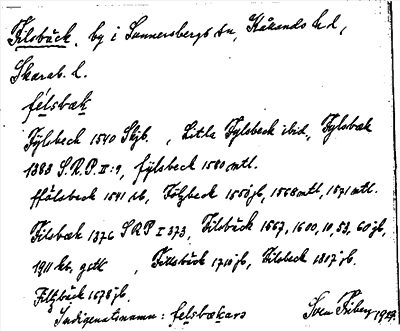 Filsbäck, by i Sunnersbergs sn, Kålands hd,
Skarab. l.
félsbæk
Fylsbeck 1540 Skjb., Litla Fylsbeck ibid, Fylsbæk
1383 S.R.P. II:9, fylsbeck 1580 mtl.
ffölsbeck 1541 sb, Fölszbeck 1550 jb, 1568 mtl, 1571 mtl.
Filsbæk 1376 SRP I 373, Filsbäck 1567, 1600, 10, 53, 60 jb,
1911 kb, gctk, Fillsbäck 1710 jb, Filsbeck 1807 jb.
Filtzbäck 1678 jb.
Indigenatsnamn: felsbækara
Sven Friberg 1929.